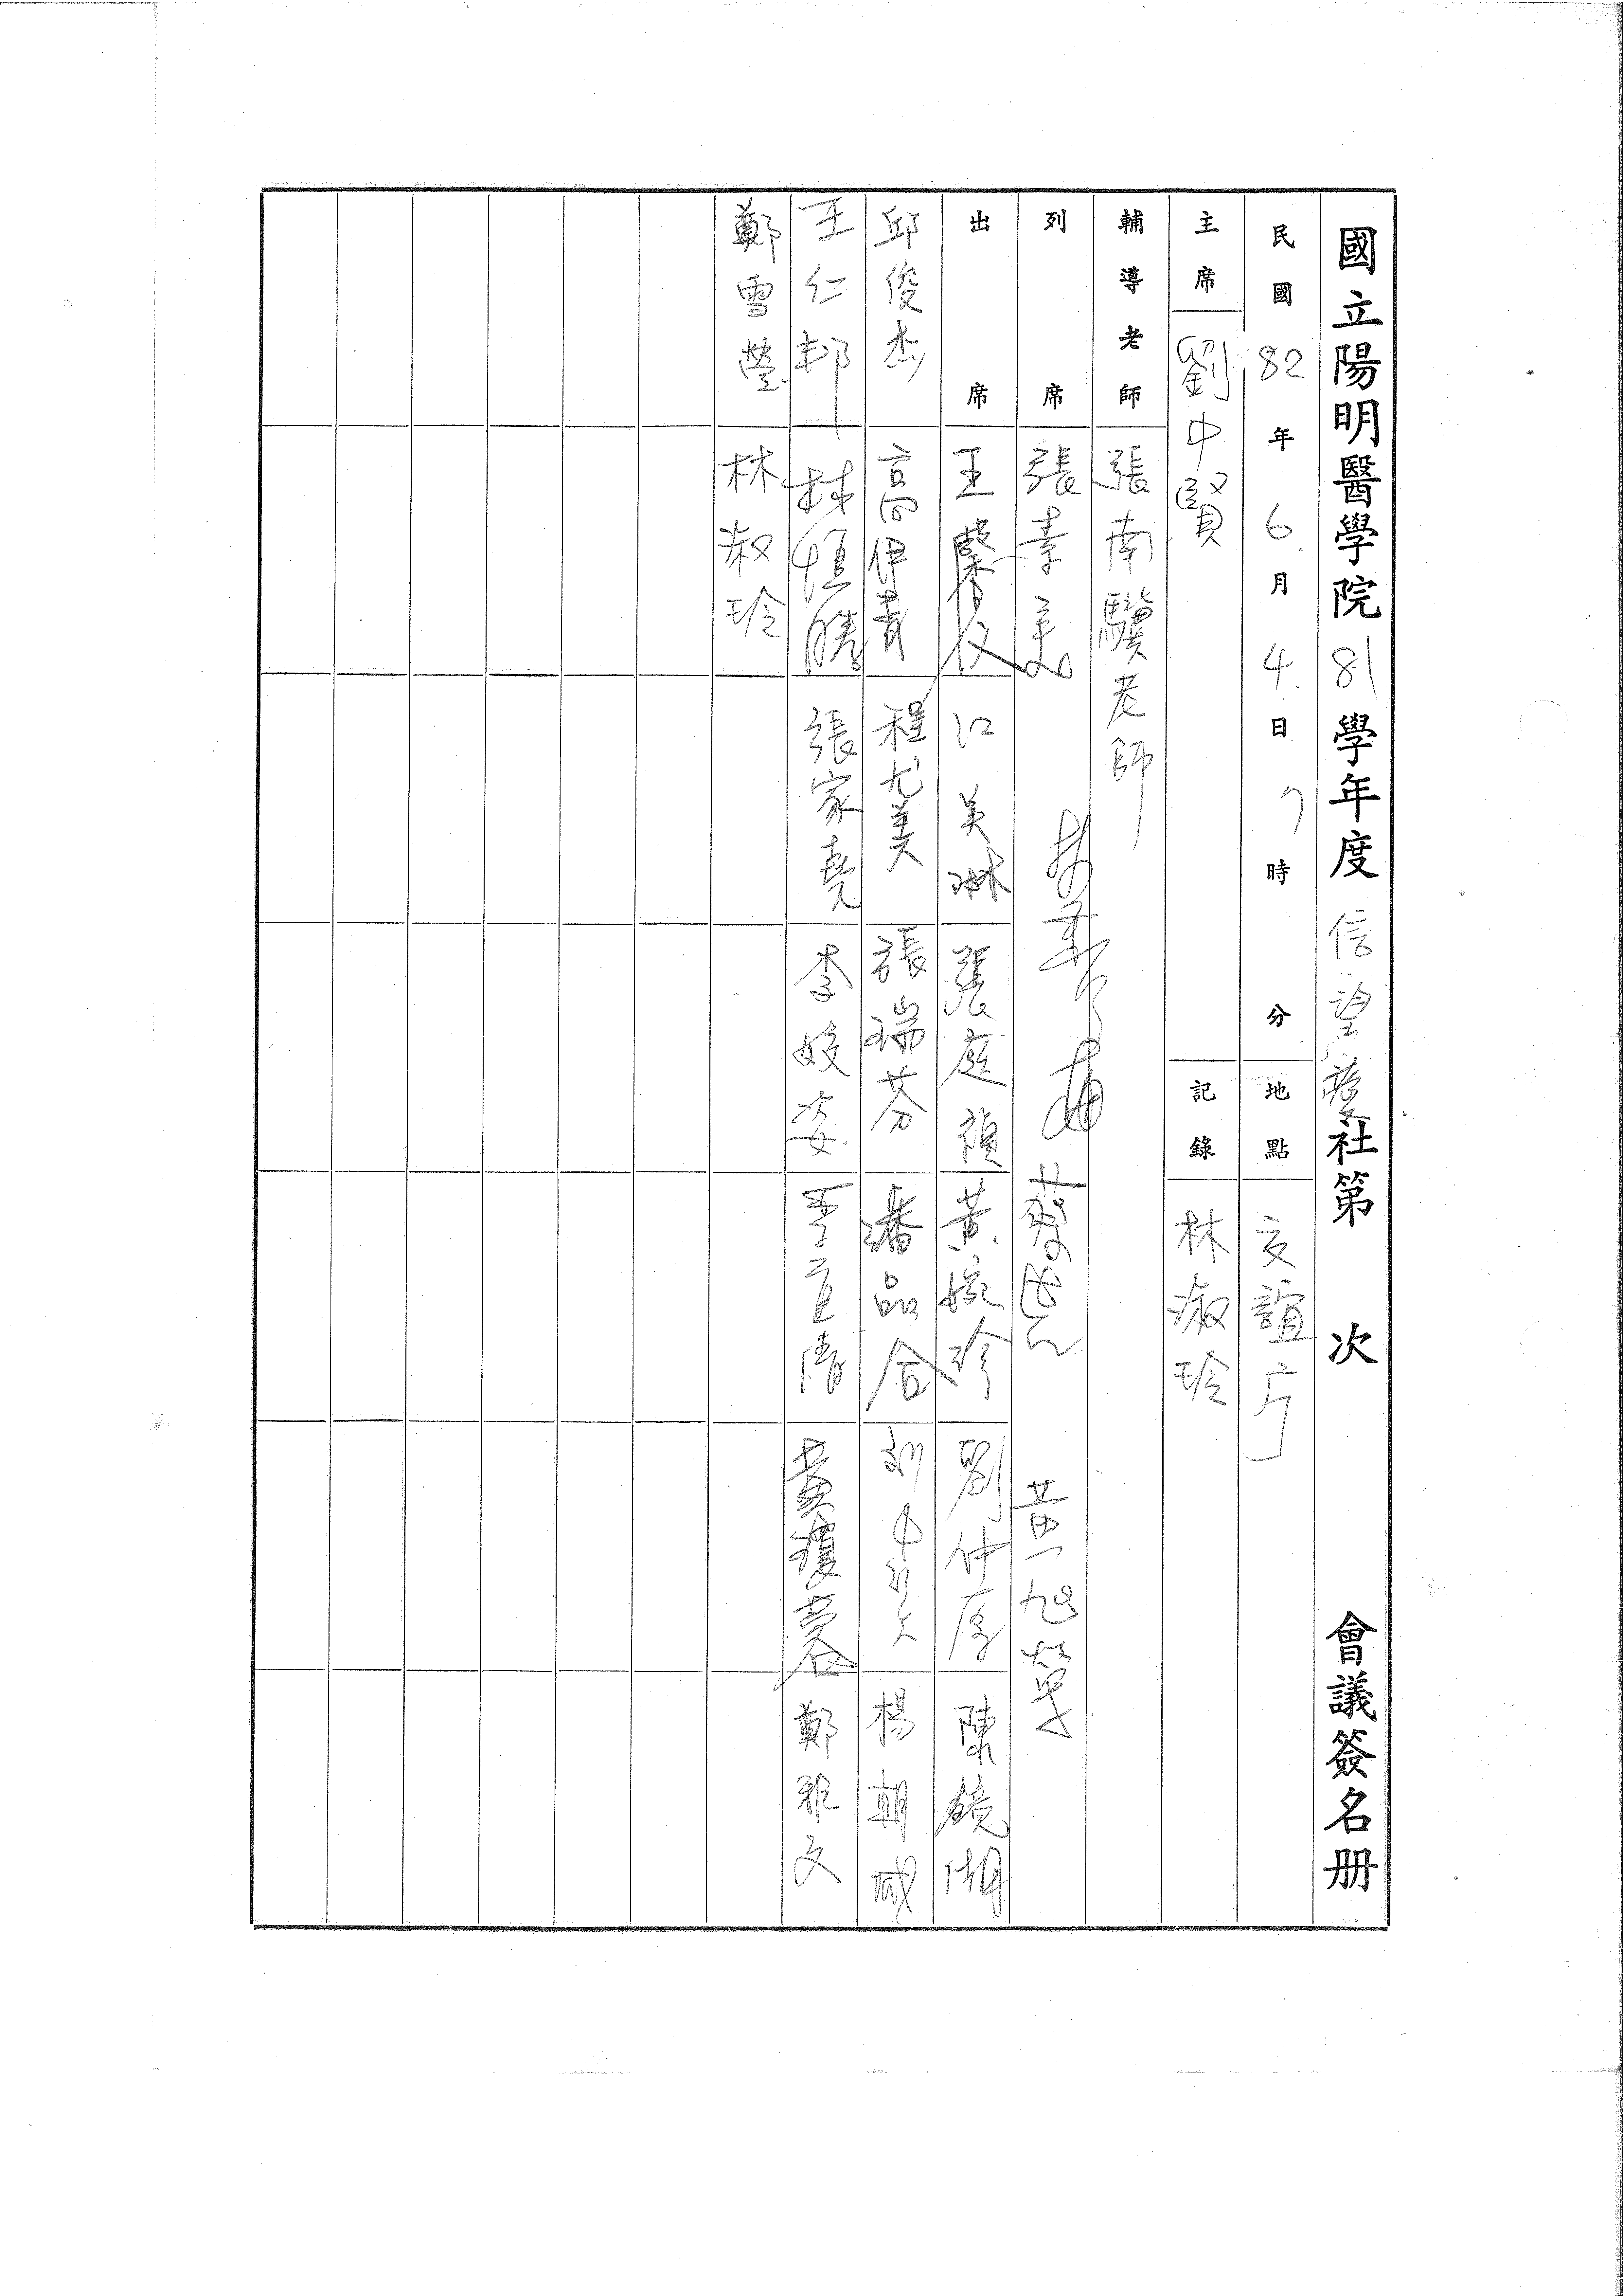 國立陽明醫學院81學年度信望愛社第 次 會議簽名册
民國82年6月4日7時 分 地點 交誼庁
主席 劉中賢 記錄 林淑玲
輔導老師 張南驥老師
列席 張素美 黃旭華
出席 王馨仪 江美琳 張庭禎 黃婉珍 劉仲序 陳鏡湖
邱俊杰 高伊青 程尤美 張瑞芬 潘品合 楊朝斌
王仁邦 林恒勝 張家堯 李姣姿 李宜清 黃瓊蓉 鄭雅文
鄭雪瑩 林淑玲